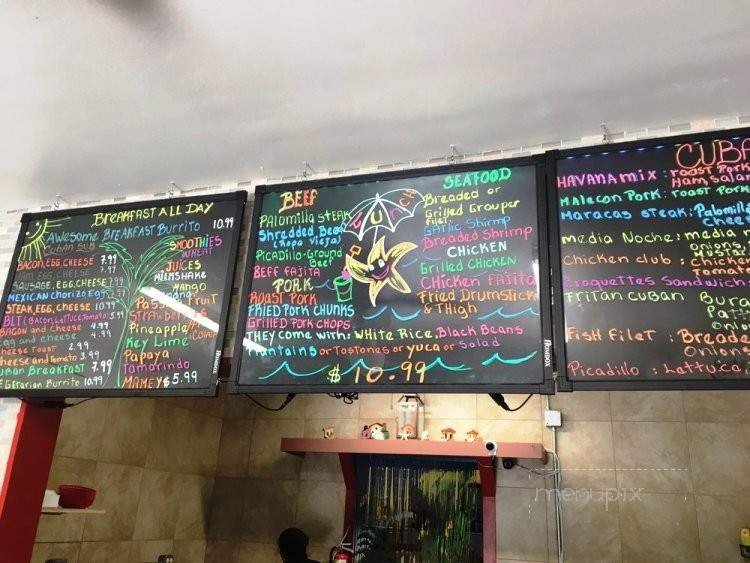 BREAKFAST ALL DAY
Awesome BREAKFAST Burrito 10.99
BACON, EGG, CHEESE 7.99
EGG CHEESE
SAUSAGE, EGG, CHEESE
MEXICAN CHORIZO EGG
STEAK, EGG, CHEESE 10.99
BLT (BACON, LETTUCE, TOMATO)
BACON and CHEESE
Egg and cheese
cheese Toast 2.99
cheese and Tomato 3.99
BREAKFAST 7.99
Burrito 10.99
SMOOTHIES
WHEAT
JUICES
MILKSHAKE
MANGO
PASSION Fruit
STRAWBERRIES
Pineapple
Key Lime
Papaya
Tamarindo
MAMEY $5.99
LUNCH
BEEF
Palomilla STEAK
Shredded Beef
(Ropa Vieja)
PICADILLO-Ground
Beef
BEEF FAJITA
PORK
ROAST PORK
FRIED PORK CHUNKS
GRILLED PORK CHOPS
SEAFOOD
Breaded or
Grilled Grouper
Filet
Garlic Shrimp
Breaded Shrimp
CHICKEN
Grilled CHICKEN
CHICKEN FAJITA
Fried Drumstick
& Thigh
THEY come with: WHITE Rice, BLACK Beans
Plantains or Tostones or yuca or salad
$10.99
CUBA
HAVANA MIX : roast Pork
Ham, Salam
MALECON PORK : roast Pork
MARACAS STEAK : Palomill
Cheese
MEDIA NOCHE : media
Onions,
Chicken club : Chick
Tomato
Croquettes Sandwich
FRITA CUBAN Bur
Onion
FISH FILET : Breade
Onions
Picadillo : Lettuc
menupix